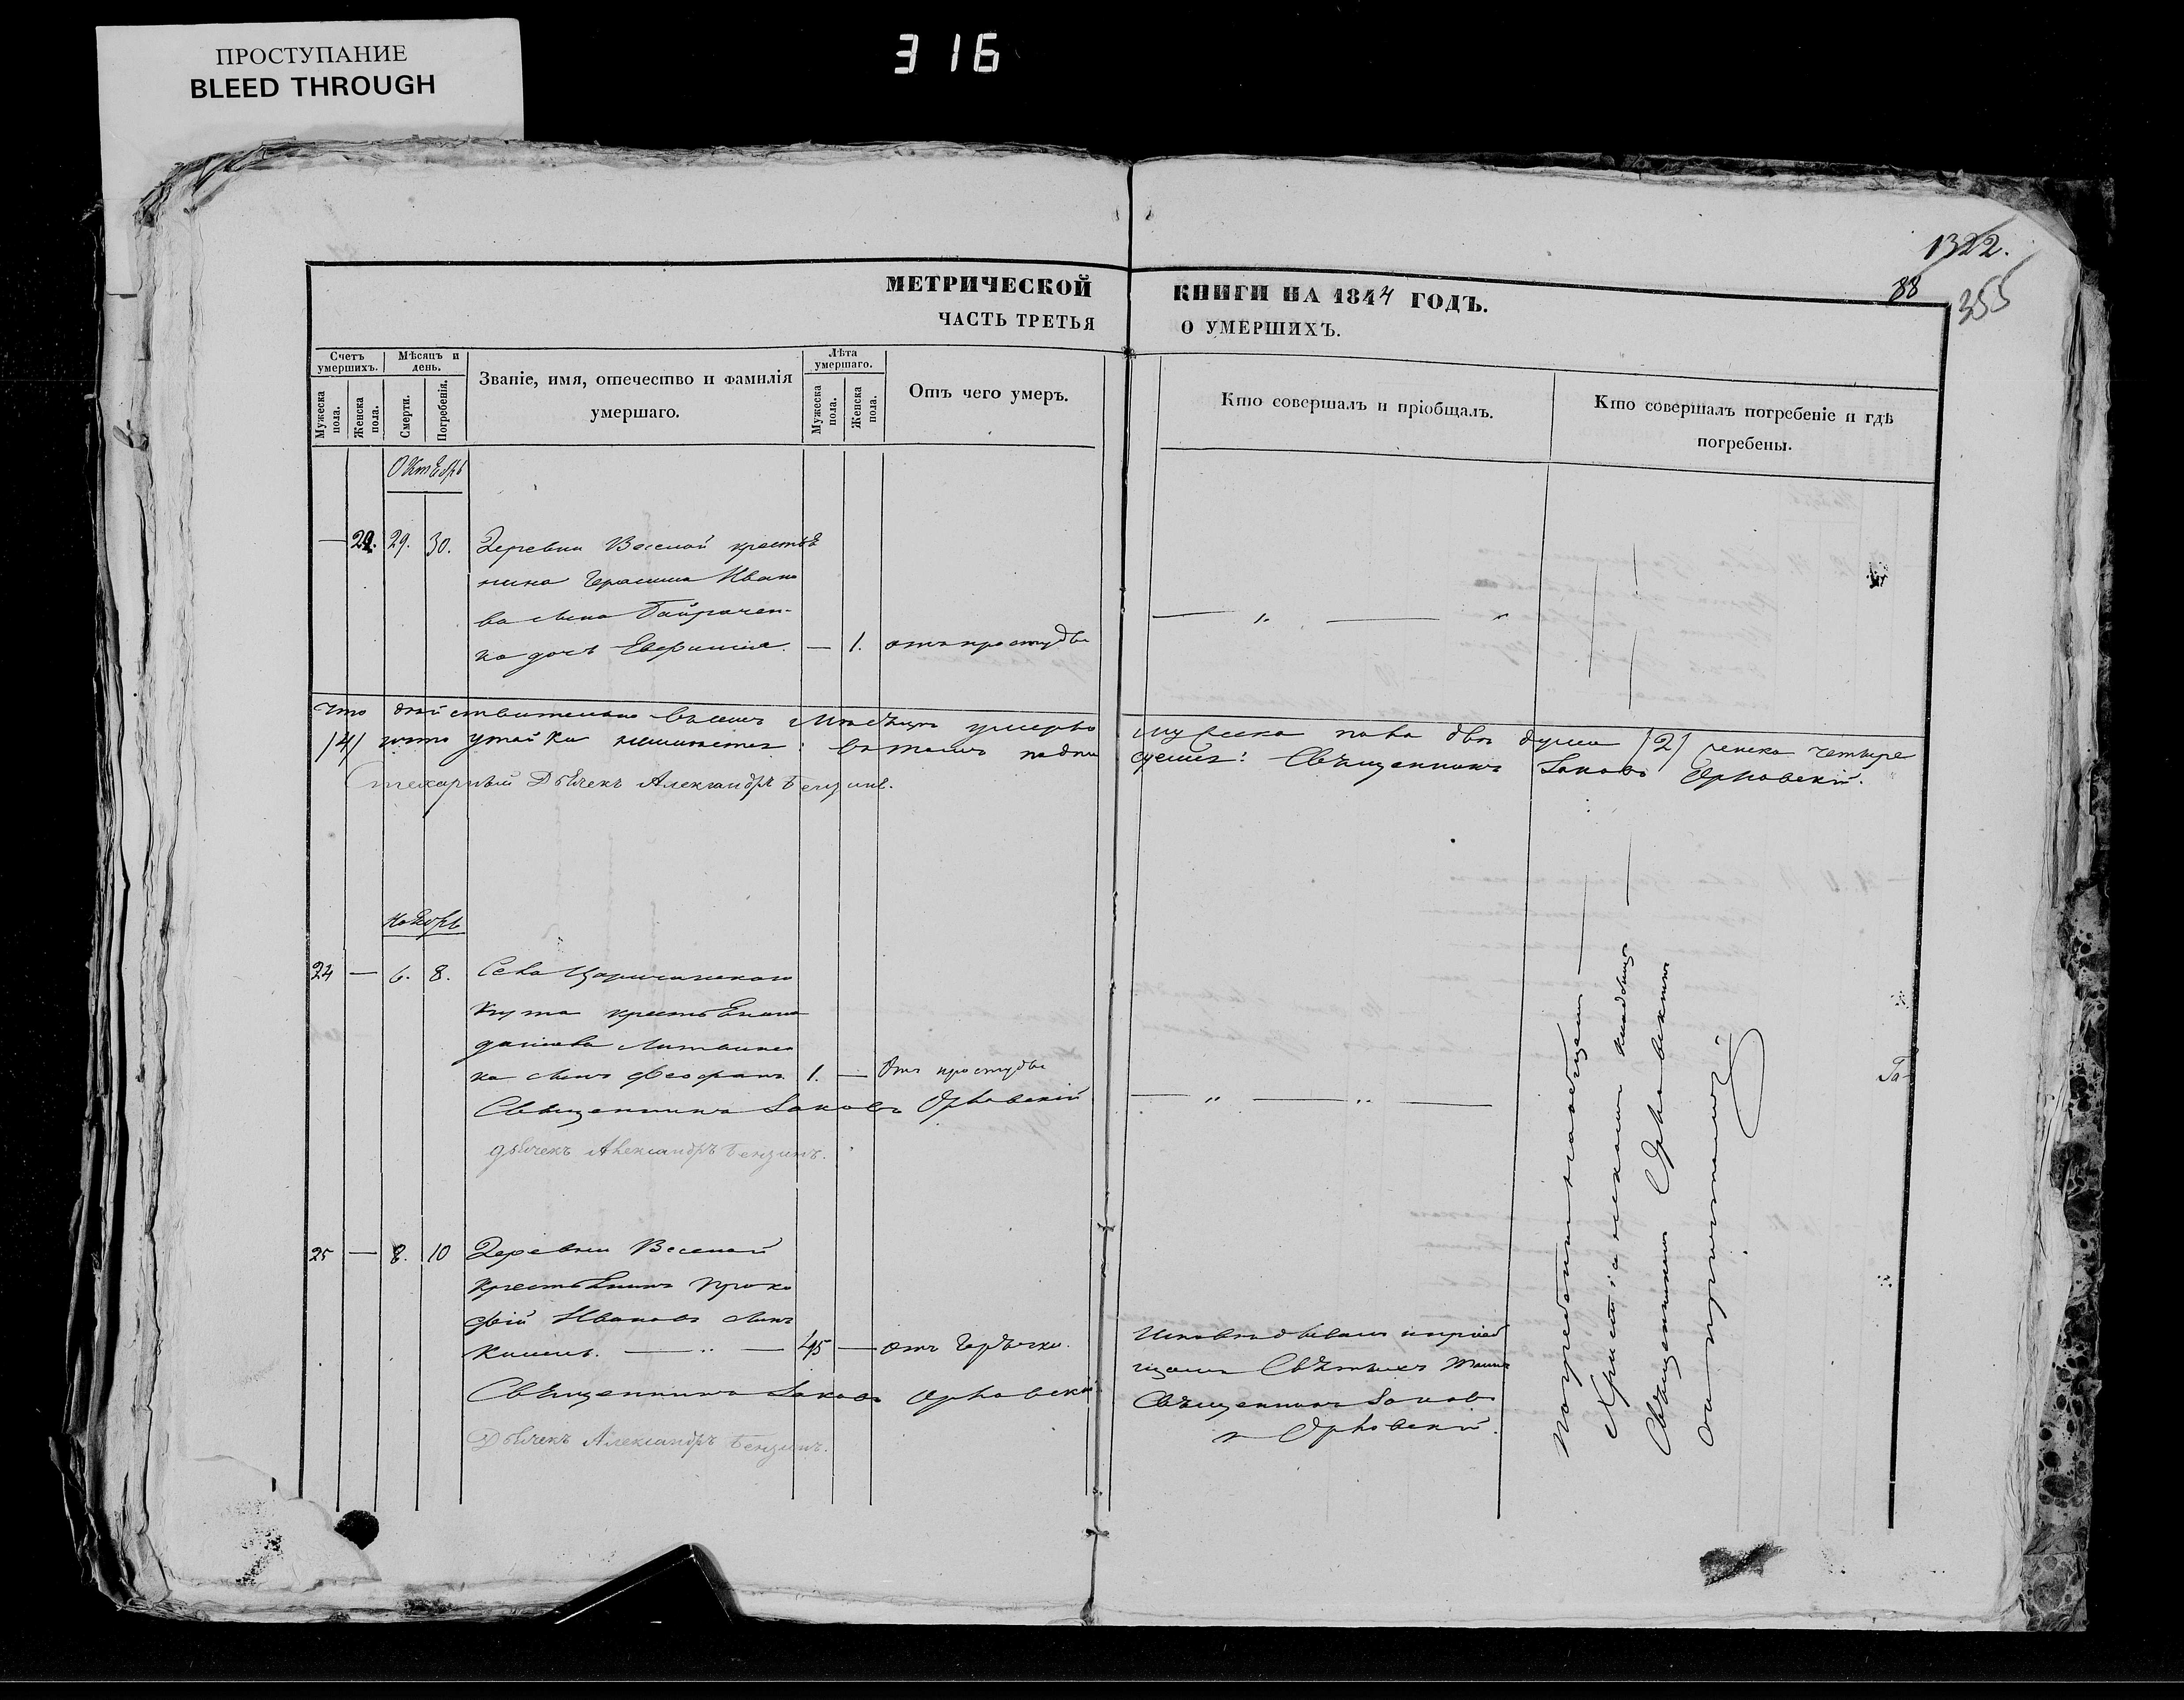 ПРОСТУПАНИЕ
BLEED THROUGH
316
1322.
88
355
МЕТРИЧЕСКОЙ КНИГИ НА 1844 ГОДЪ.
ЧАСТЬ ТРЕТЬЯ О УМЕРШИХЪ.
Счетъ умершихъ.
Мужеска пола.
Женска пола.
Мѣсяцъ и день.
Смерти.
Погребенія.
Званіе, имя, отечество и фамилія
умершаго.
Лѣта умершаго.
Мужеска пола.
Женска пола.
Отъ чего умеръ.
Кто совершалъ и пріобщалъ.
Кто совершалъ погребеніе и гдѣ
погребены.
Октябрь
— 22. 29. 30. Деревни Веселой крестья
нина Герасима Ивано
ва сына Байрачен-
ка дочь Евфимія. — 1. отъ простуды
что действительно въ семъ Месяце умерло мужеска пола две души /2/ женска четыре
/4/ и что утайки неимѣется: въ томъ подпи суемся: Священникъ Іаковъ Орловскій.
Дьячекъ Александръ Бензинъ.
Ноябрь
24 — 6. 8. Села Царичанского
Кута крестьянина
Литвинен
ка сынъ Феофанъ. 1. — Отъ простуды
Священникъ Іаковъ Орловскій
дьячекъ Александръ Бензинъ.
25 — 8. 10 Деревни Веселой
Крестьянинъ Проко
фій Ивановъ сынъ
45 — отъ Горячки.
Священникъ Іаковъ Орловскій
Дьячекъ Александръ Бензинъ.
Исповѣдывалъ и пріоб
щалъ Святыхъ Таинъ
Священникъ Іаковъ
Орловскій.
Погребены на общемъ
Христіанскомъ кладбище
Священникомъ Орловскимъ
съ причетникомъ.